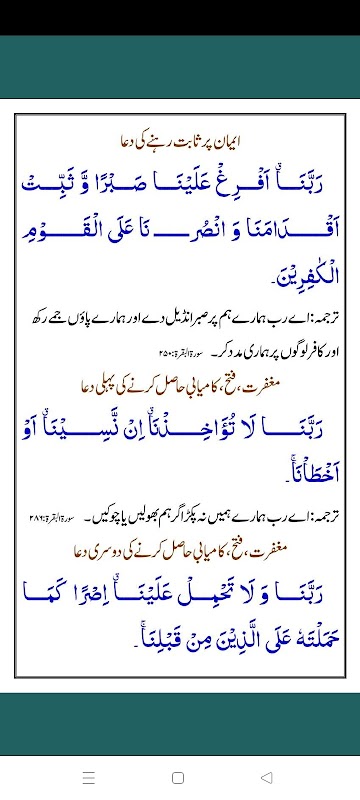 ایمان پر ثابت رہنے کی دعا
رَبَّنَاۤ اَفْرِغْ عَلَیْنَا صَبْرًا وَّ ثَبِّتْ
اَقْدَامَنَا وَ انْصُرْنَا عَلَی الْقَوْمِ
الْکٰفِرِیْنَ۔
ترجمہ: اے رب ہمارے ہم پر صبر انڈیل دے اور ہمارے پاؤں جمے رکھ
اور کافر لوگوں پر ہماری مدد کر۔ سورۃ البقرۃ:۲۵۰
مغفرت، فتح، کامیابی حاصل کرنے کی پہلی دعا
رَبَّنَا لَا تُؤَاخِذْنَاۤ اِنْ نَّسِیْنَاۤ اَوْ
اَخْطَاْنَاۚ۔
ترجمہ: اے رب ہمارے ہمیں نہ پکڑ اگر ہم بھولیں یا چوکیں۔ سورۃ البقرۃ:۲۸۶
مغفرت، فتح، کامیابی حاصل کرنے کی دوسری دعا
رَبَّنَا وَ لَا تَحْمِلْ عَلَیْنَاۤ اِصْرًا کَمَا
حَمَلْتَهٗ عَلَی الَّذِیْنَ مِنْ قَبْلِنَاۚ۔